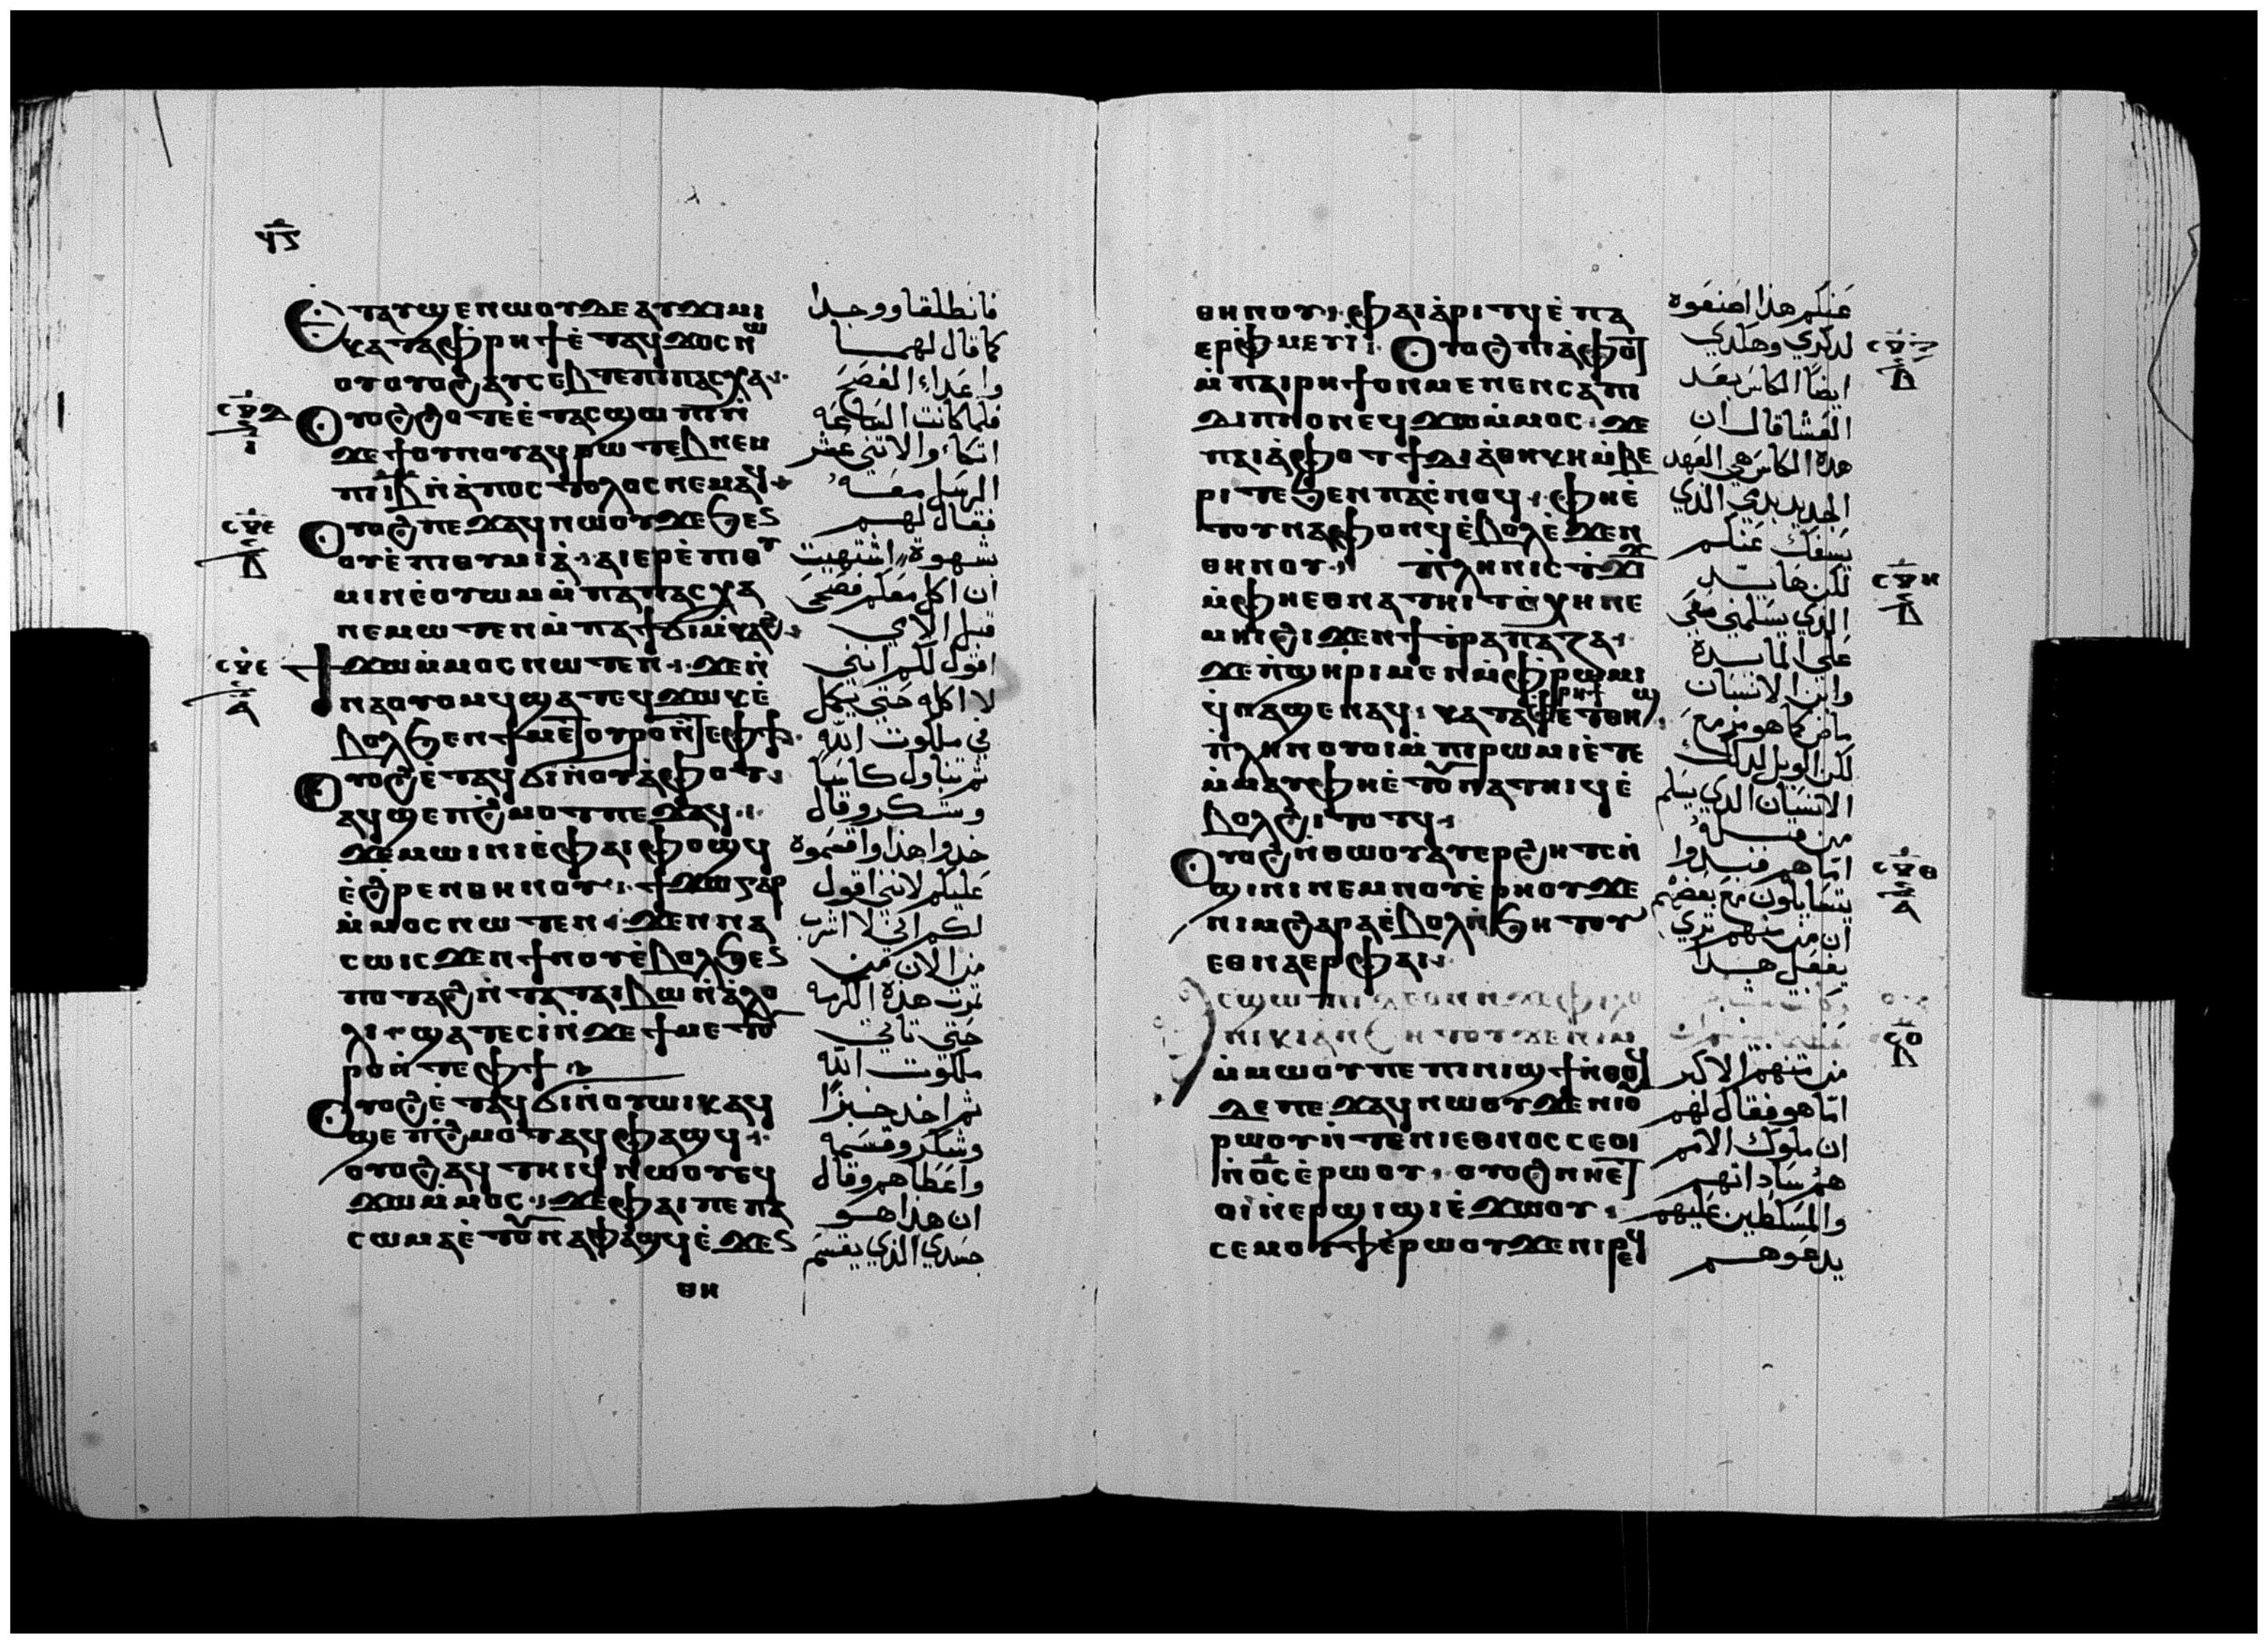 ϥⲋ
Ⲉⲧⲁⲩϣⲉⲛⲱⲟⲩⲇⲉⲁⲩϫⲓⲙⲓ
ⲕⲁⲧⲁⲫⲣⲏϯⲉ̀ⲧⲁϥϫⲟⲥⲛⲱ
ⲟⲩⲟⲩⲟϩⲁⲩⲥⲉⲃⲧⲉⲡⲓⲡⲁⲥⲭⲁ
Ⲟⲩⲟϩϩⲟⲧⲉⲉ̀ⲧⲁⲥϣⲱⲡⲓⲛ̀
ϫⲉϯⲟⲩⲛⲟⲩⲁϥⲣⲱⲧⲉⲃⲛⲉⲙ
ⲡⲓⲓⲃⲛ̀ⲁ̀ⲡⲟⲥⲧⲟⲗⲟⲥⲛⲉⲙⲁϥ
Ⲟⲩⲟϩⲡⲉϫⲁϥⲛⲱⲟⲩϫⲉϧⲉⲛ
ⲟⲩⲉ̀ⲡⲓⲑⲩⲙⲓⲁ̀ⲁⲓⲉⲣⲉ̀ⲡⲓⲑⲩ
ⲙⲓⲛⲉ̀ⲟⲩⲱⲙⲙ̀ⲡⲁⲡⲁⲥⲭⲁ
ⲛⲉⲙⲱⲧⲉⲛⲙ̀ⲡⲁϯϭⲓⲙ̀ⲕⲁϩ
ϯϫⲱⲙ̀ⲙⲟⲥⲛⲱⲧⲉⲛϫⲉⲛ̀
ⲛⲁⲟⲩⲟⲙϥϣⲁⲧⲉϥϫⲱⲕⲉ̀
ⲃⲟⲗϧⲉⲛϯⲙⲉⲧⲟⲩⲣⲟⲛ̀ⲧⲉⲫϯ
Ⲟⲩⲟϩⲉ̀ⲧⲁϥϭⲓⲛ̀ⲟⲩⲁ̀ⲫⲟⲧ
ⲁϥϣⲉⲡϩ̀ⲙⲟⲧⲡⲉϫⲁϥ
ϫⲉⲙⲱⲓⲛⲓⲉ̀ⲫⲁⲓⲫⲟϣϥ
ⲉ̀ϩⲣⲉⲛⲑⲏⲛⲟⲩϯϫⲱⲅⲁⲣ
ⲙ̀ⲙⲟⲥⲛⲱⲧⲉⲛϫⲉⲛⲛⲁ
ⲥⲱⲓⲥϫⲉⲛϯⲛⲟⲩⲉ̀ⲃⲟⲗϧⲉⲛ
ⲡⲟⲩⲧⲁϩⲛ̀ⲧⲁⲧⲁⲓⲃⲱⲛ̀ⲁ̀ⲗⲟ
ⲗⲓϣⲁⲧⲉⲥⲓ̀ⲛ̀ϫⲉϯⲙⲉⲧⲟⲩ
ⲣⲟⲛ̀ⲧⲉⲫϯ
Ⲟⲩⲟϩⲉ̀ⲧⲁϥϭⲓⲛ̀ⲟⲩⲱⲓⲕⲁϥ
ϣⲉⲡϩ̀ⲙⲟⲧⲁϥⲫⲁϣϥ
ⲟⲩⲟϩⲁϥⲧⲏⲓϥⲛⲱⲟⲩⲉϥ
ϫⲱⲙ̀ⲙⲟⲥϫⲉⲫⲁⲓⲡⲉⲡⲁ
ⲥⲱⲙⲁⲉ̀ⲧⲟⲩⲛⲁⲫⲁϣϥⲉ̀ϫⲉⲛ
ⲑⲏ
فانطلقا ووجدا
كما قال لهما
واعدا الفصح
فلما كانت الساعه
اتكا والاتني عشر
الرسل معه
فقال لهم
شهوة اشتهيت
ان اكل معكم فصحي
قبل الامي
اقول لكم انني
لا اكله حتي يكمل
في ملكوت الله
ثم تناول كاسًا
وشكر وقال
خدوا هذا واقسموه
عليكم لانني اقول
لكم اني لا اشرب
من الان من
ثمرت هذه الكرمه
حتي تاتي
ملكوت الله
ثم اخد خبزًا
وشكر وقسمه
واعطاهم وقال
ان هذا هو
جسدي الذي يقسم
ⲑⲏⲛⲟⲩⲫⲁⲓⲁ̀ⲣⲓⲧϥⲉ̀ⲡⲁ
ⲉⲣⲫⲙⲉⲩⲓ̀Ⲟⲩⲟϩⲡⲓⲁ̀ⲫⲟⲧ
ⲙ̀ⲡⲁⲓⲣⲏϯⲟⲛⲙⲉⲛⲉⲛⲥⲁⲡⲓ
ⲇⲓⲡⲛⲟⲛⲉϥϫⲱⲙ̀ⲙⲟⲥϫⲉ
ⲡⲁⲓⲁ̀ⲫⲟⲧϯⲇⲓⲁ̀ⲑⲏⲕⲏⲙ̀ⲃⲉ
ⲣⲓⲧⲉϧⲉⲛⲡⲁⲥ̀ⲛⲟϥⲫⲏⲉ̀
ⲧⲟⲩⲛⲁⲫⲟⲛϥⲉ̀ⲃⲟⲗⲉ̀ϫⲉⲛ
ⲑⲏⲛⲟⲩⲡ̀ⲗⲏⲛⲓⲥⲧϫⲓϫ
ⲙ̀ⲫⲏⲉⲑⲛⲁⲧⲏⲓⲧⲥ̀ⲭⲏⲛⲉ
ⲙⲏⲓϩⲓϫⲉⲛϯⲧ̀ⲣⲁⲡⲉⲍⲁ
ϫⲉⲡ̀ϣⲏⲣⲓⲙⲉⲛⲙ̀ⲫ̀ⲣⲱⲙⲓ
ϥⲛⲁϣⲉⲛⲁϥⲕⲁⲧⲁⲫⲣⲏϯⲉⲧⲑⲏϣ
ⲡ̀ⲗⲏⲛⲟⲩⲟⲓⲙ̀ⲡⲓⲣⲱⲙⲓⲉ̀ⲧⲉ
ⲙ̀ⲙⲁⲩⲫⲏⲉ̀ⲧⲟⲩⲛⲁⲧⲏⲓϥⲉ̀
ⲃⲟⲗϩⲓⲧⲟⲧϥ
Ⲟⲩⲟϩⲛ̀ⲑⲱⲟⲩⲁⲩⲉⲣϩⲏⲧⲥⲛ̀
ϣⲓⲛⲓⲛⲉⲙⲛⲟⲩⲉ̀ⲣⲏⲟⲩϫⲉ
ⲛⲓⲙϩⲁⲣⲁⲉ̀ⲃⲟⲗⲛ̀ϧⲏⲧⲟⲩ
ⲉⲑⲛⲁⲉⲣⲫⲁⲓ
ⲥϣⲱⲡⲓⲇⲉⲟⲛⲛ̀ϫⲉⲫⲓⲗⲟ
ⲛⲓⲕⲓⲁ̀ⲛ̀ϧⲏⲧⲟⲩϫⲉⲛⲓⲙ
ⲙ̀ⲙⲱⲟⲩⲡⲉⲡⲓⲛⲓϣϯⲛ̀ⲑⲟϥ
ⲇⲉⲡⲉϫⲁϥⲛⲱⲟⲩϫⲉⲛⲓⲟⲩ
ⲣⲱⲟⲩⲛ̀ⲧⲉⲛⲓⲉⲑⲛⲟⲥⲥⲉⲟⲓ
ⲛ̀ⲟ̅ⲥ̅ⲉ̀ⲣⲱⲟⲩⲟⲩⲟϩⲛⲏⲉⲧ
ⲟⲓⲛ̀ⲉⲣϣⲓϣⲓⲉ̀ϫⲱⲟⲩ
ⲥⲉⲙⲟⲩϯⲉ̀ⲣⲱⲟⲩϫⲉⲛⲓⲣⲉϥ
عنكم هذا اصنعوه
لدكري وهكدي
ايضًا الكاس بعد
العشا قال ان
هذه الكاس هي العهد
الجديد بدمي الذي
يسفك عنكم
لكن ها يد
الذي يسلمني معي
علي المايده
وابن الانسان
ماض كما هو مزمع
لكن الويل لدلك
الانسان الذي يسلم
من قبله
اما هم فبدوا
يتسايلون مع بعضهم
ان من منهم تري
يفعل هدا
من منهم الاكبر
اما هو فقال لهم
ان ملوك الامم
هم ساداتهم
والمسلطين عليهم
يدعوهم